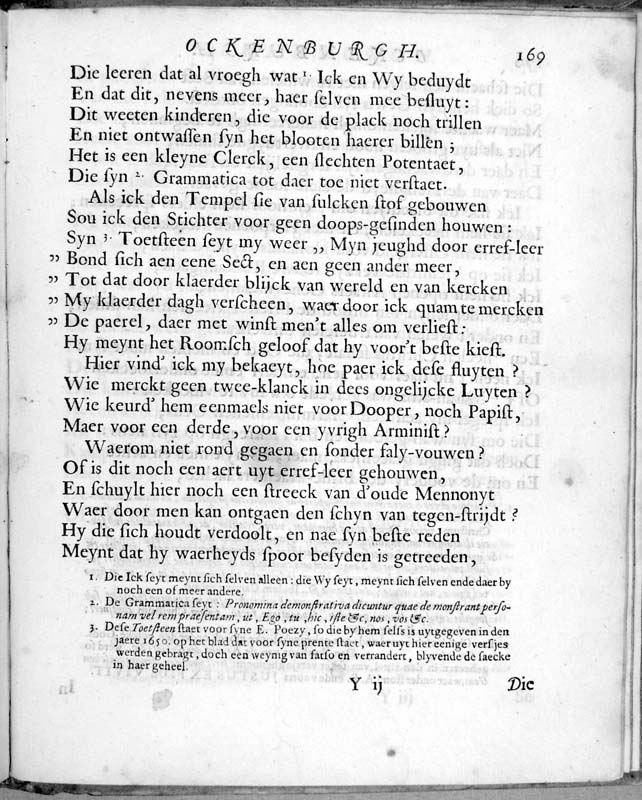 OCKENBURGH. 169
Die leeren dat al vroegh wat 1. Ick en Wy beduydt
En dat dit, nevens meer, haer ſelven mee beſluyt:
Dit weeten kinderen, die voor de plack noch trillen
En niet ontwaſſen ſyn het blooten haerer billen;
Het is een kleyne Clerck, een ſlechten Potentaet,
Die ſyn 2. Grammatica tot daer toe niet verſtaet.
Als ick den Tempel ſie van ſulcken ſtof gebouwen
Sou ick den Stichter voor geen doops-geſinden houwen:
Syn 3. Toetſteen ſeyt my weer ,, Myn jeughd door erref-leer
,, Bond ſich aen eene Sect, en aen geen ander meer,
,, Tot dat door klaerder blijck van wereld en van kercken
,, My klaerder dagh verſcheen, waer door ick quam te mercken
,, De paerel, daer met winſt men't alles om verlieſt:
Hy meynt het Roomſch geloof dat hy voor't beſte kieſt.
Hier vind' ick my bekaeyt, hoe paer ick deſe fluyten?
Wie merckt geen twee-klanck in dees ongelijcke Luyten?
Wie keurd' hem eenmaels niet voor Dooper, noch Papiſt,
Maer voor een derde, voor een yvrigh Arminiſt?
Waerom niet rond gegaen en ſonder faly-vouwen?
Of is dit noch een aert uyt erref-leer gehouwen,
En ſchuylt hier noch een ſtreeck van d'oude Mennonyt
Waer door men kan ontgaen den ſchyn van tegen-ſtrijdt?
Hy die ſich houdt verdoolt, en nae ſyn beſte reden
Meynt dat hy waerheyds ſpoor beſyden is getreeden,
1. Die Ick ſeyt meynt ſich ſelven alleen: die Wy ſeyt, meynt ſich ſelven ende daer by
noch een of meer andere.
2. De Grammatica ſeyt: Pronomina demonſtrativa dicuntur quae demonſtrant perſo-
nam vel rem præſentam, ut, Ego, tu, hic, iſte &c, nos, vos &c.
3. Deſe Toetſteen ſtaet voor ſyne E. Poezy, ſo die by hem ſelfs is uytgegeven in den
jaere 1650. op het blad dat voor ſyne prente ſtaet, waer uyt hier eenige verſjes
werden gebragt, doch een weynig van fatſo en verrandert, blyvende de ſaecke
in haer geheel.
Y ij Die